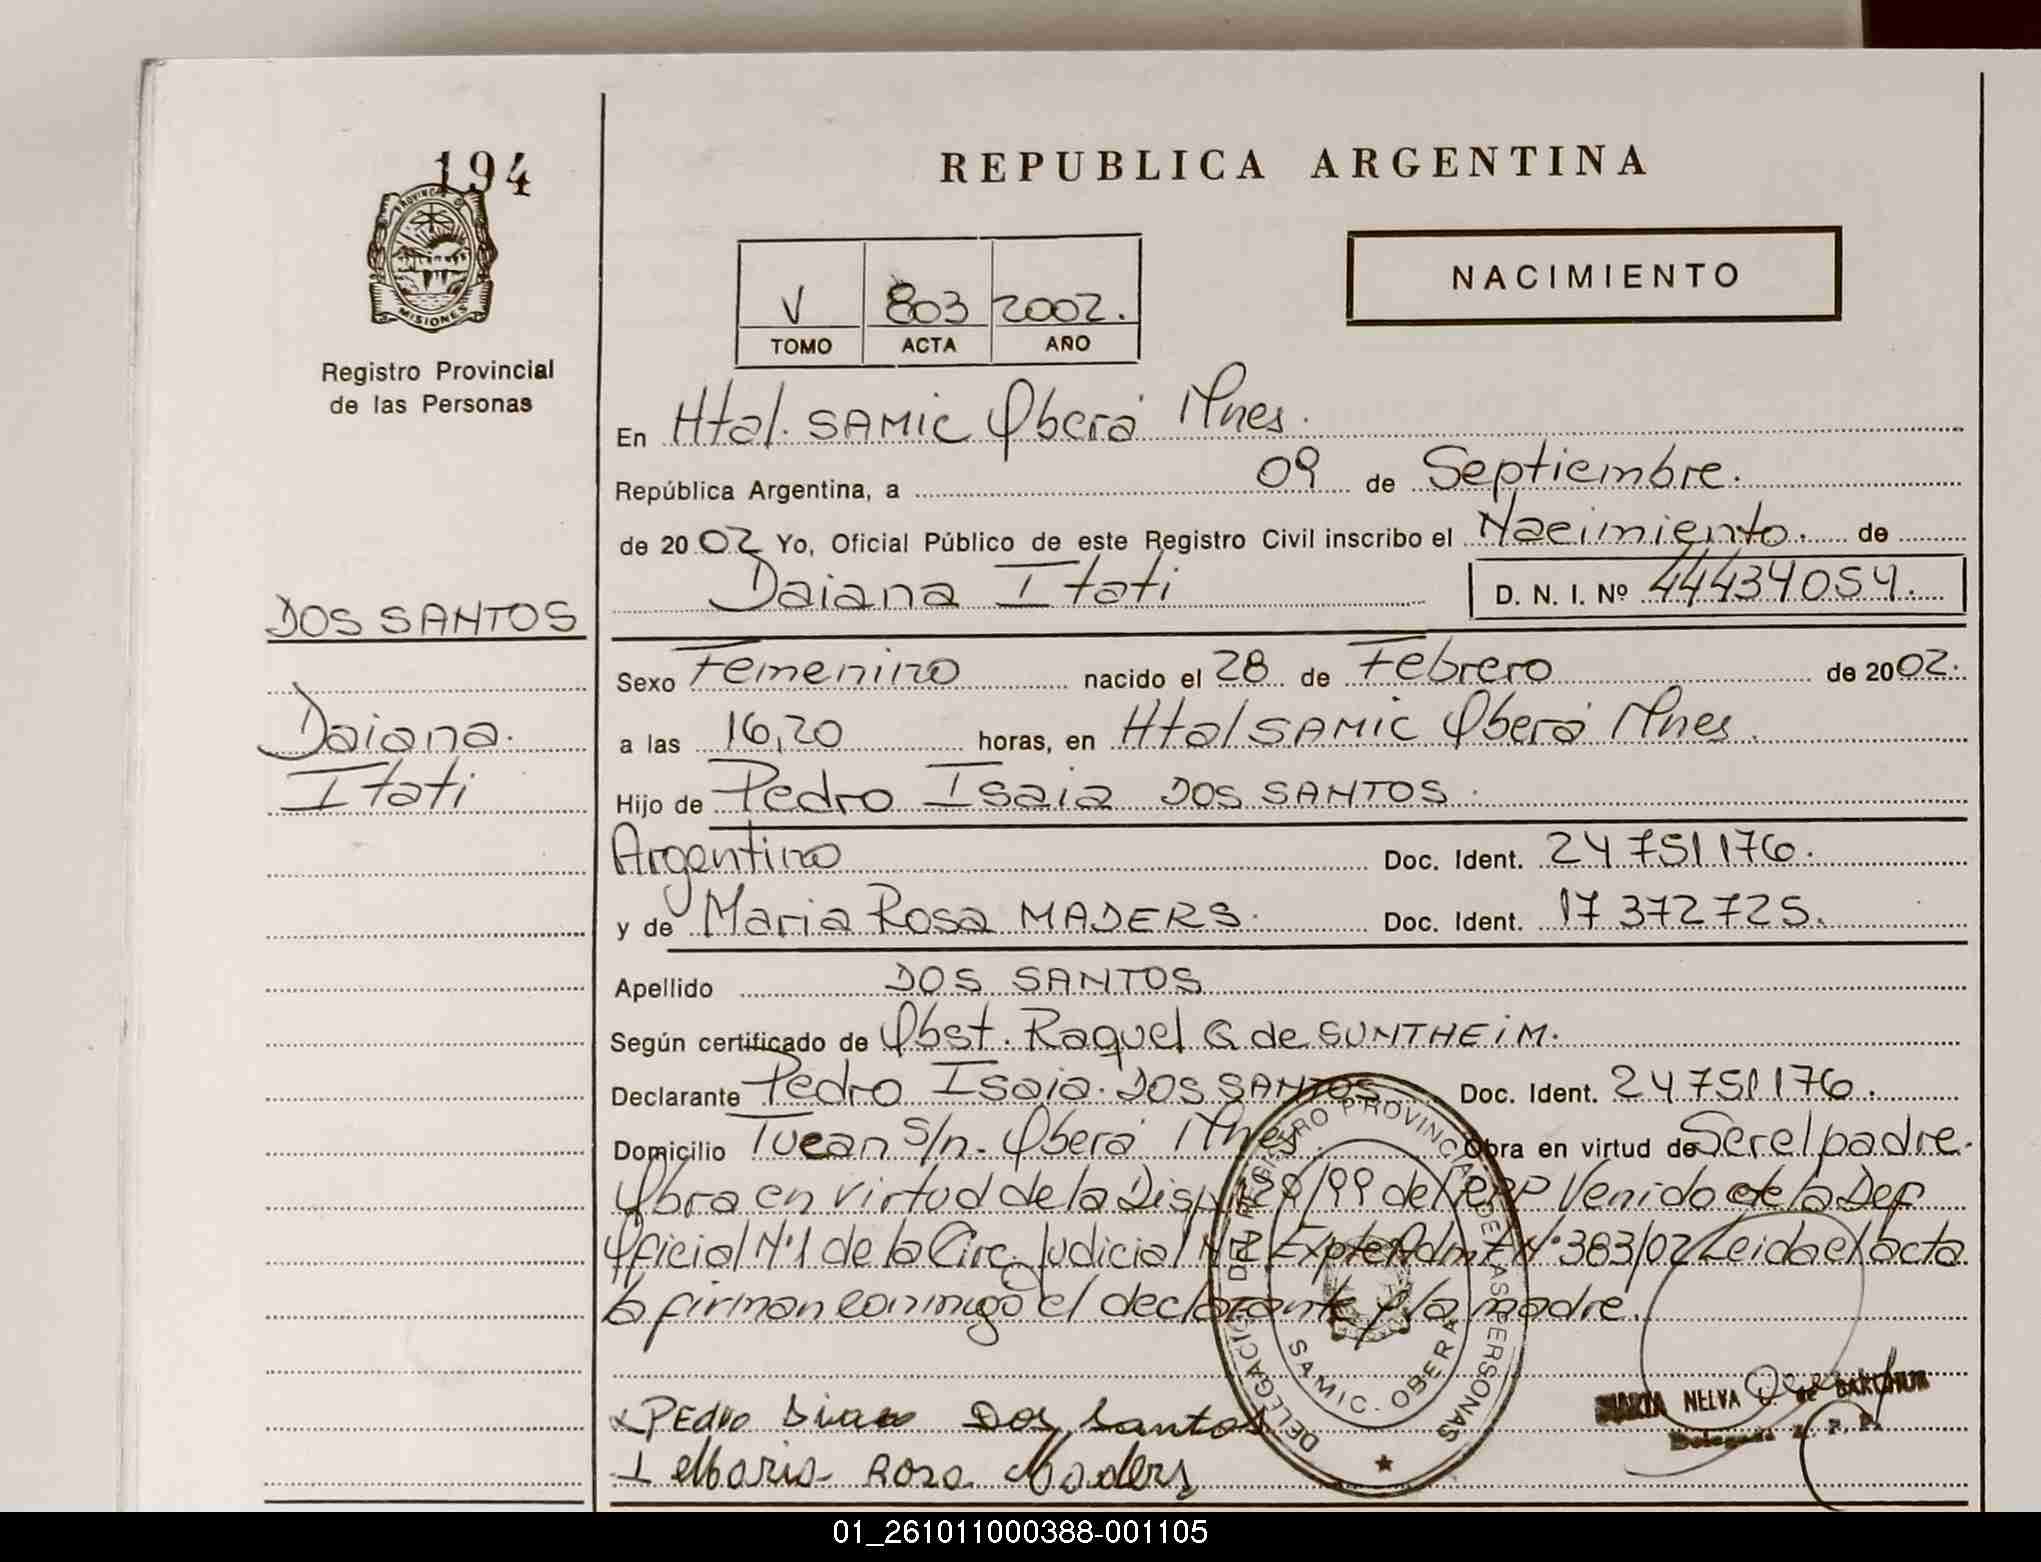 194
PROVINCIA DE
MISIONES
Registro Provincial
de las Personas
DOS SANTOS
Daiana
Itati
REPUBLICA ARGENTINA
NACIMIENTO
V 803 2002.
TOMO ACTA AÑO
En Htal. SAMIC Oberá Mnes.
República Argentina, a 09 de Septiembre.
de 2002 Yo, Oficial Público de este Registro Civil inscribo el Nacimiento. de
Daiana Itati D. N. I. Nº 44434054.
Sexo Femenino nacido el 28 de Febrero de 2002.
a las 16,20 horas, en Htal SAMIC Oberá Mnes.
Hijo de Pedro Isaia DOS SANTOS.
Argentino Doc. Ident. 24751176.
y de Maria Rosa MADERS. Doc. Ident. 17372725.
Apellido DOS SANTOS
Según certificado de Obst. Raquel G de SUNTHEIM.
Declarante Pedro Isaia. DOS SANTOS Doc. Ident. 24751176.
Domicilio Tucan S/n. Oberá Mnes Obra en virtud de Ser el padre.
Obra en virtud de la Disp. /99 del RPP Venido de la Def
Oficial Nº1 de la Circ. Judicial Expte Adm Nº 383/02 Leida el acta
la firman conmigo el declarante y la madre.
DELEGACION DEL REGISTRO PROVINCIAL DE LAS PERSONAS
SAMIC. OBERA
Pedro Dos Santos
Maria Rosa Maders
MARTA NELVA de BARCHUK
Delegada R. P. P.
01_261011000388-001105